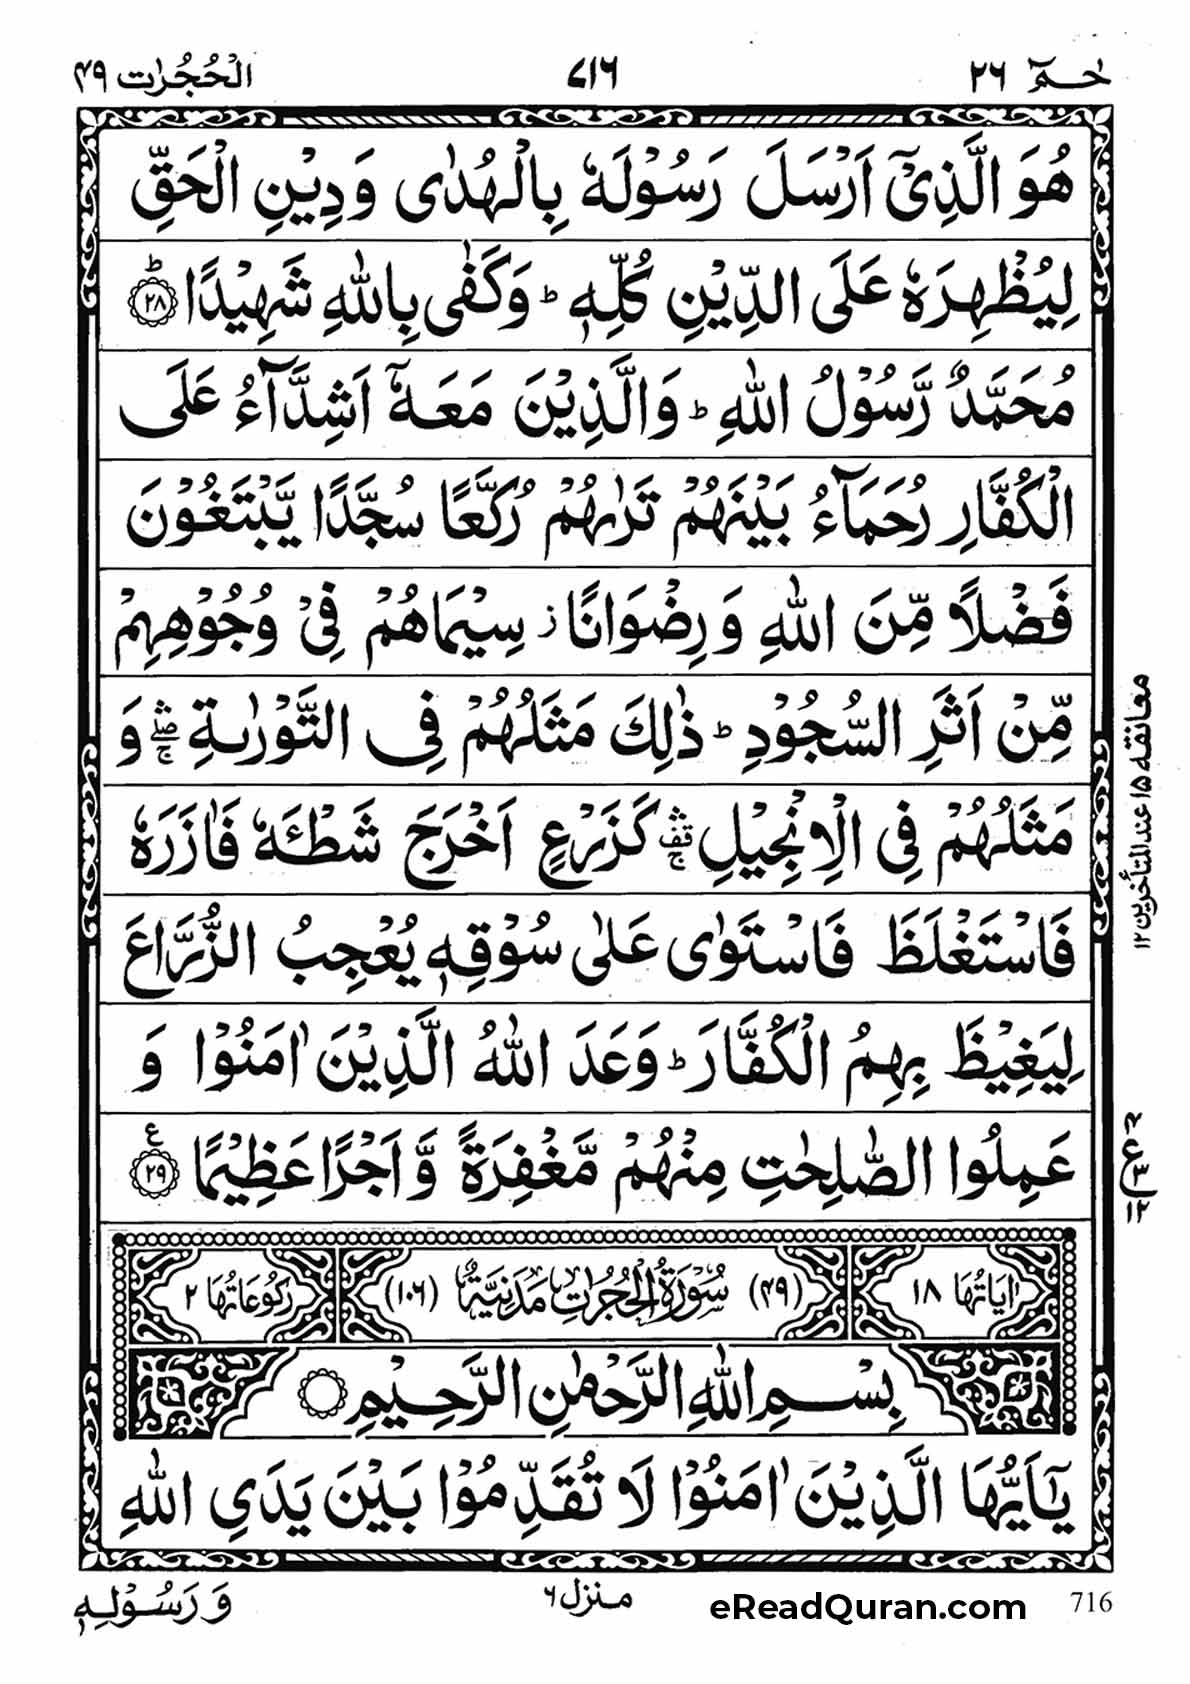 حٰـمٓ ٢٦
٧١٦
الْحُجُرٰت ٤٩
هُوَ الَّذِیْۤ اَرْسَلَ رَسُوْلَهٗ بِالْهُدٰی وَ دِیْنِ الْحَقِّ
لِیُظْهِرَهٗ عَلَی الدِّیْنِ كُلِّهٖ ؕ وَ كَفٰی بِاللّٰهِ شَهِیْدًا ؕ ﴿۲۸﴾
مُحَمَّدٌ رَّسُوْلُ اللّٰهِ ؕ وَ الَّذِیْنَ مَعَهٗۤ اَشِدَّآءُ عَلَی
الْكُفَّارِ رُحَمَآءُ بَیْنَهُمْ تَرٰىهُمْ رُكَّعًا سُجَّدًا یَّبْتَغُوْنَ
فَضْلًا مِّنَ اللّٰهِ وَ رِضْوَانًا ؗ سِیْمَاهُمْ فِیْ وُجُوْهِهِمْ
مِّنْ اَثَرِ السُّجُوْدِ ؕ ذٰلِكَ مَثَلُهُمْ فِی التَّوْرٰىةِ ۛۖۚ وَ
مَثَلُهُمْ فِی الْاِنْجِیْلِ ۛ۫ۚ كَزَرْعٍ اَخْرَجَ شَطْـَٔهٗ فَاٰزَرَهٗ
فَاسْتَغْلَظَ فَاسْتَوٰی عَلٰی سُوْقِهٖ یُعْجِبُ الزُّرَّاعَ
لِیَغِیْظَ بِهِمُ الْكُفَّارَ ؕ وَعَدَ اللّٰهُ الَّذِیْنَ اٰمَنُوْا وَ
عَمِلُوا الصّٰلِحٰتِ مِنْهُمْ مَّغْفِرَةً وَّ اَجْرًا عَظِیْمًا ﴿۲۹﴾ ع
معانقه ۱۵ عند المتأخرین ۱۲
اٰیَاتُهَا ۱۸
(۴۹) سُوْرَةُ الْحُجُرٰتِ مَدَنِیَّةٌ (۱۰۶)
رُكُوْعَاتُهَا ۲
بِسْمِ اللّٰهِ الرَّحْمٰنِ الرَّحِیْمِ
یٰۤاَیُّهَا الَّذِیْنَ اٰمَنُوْا لَا تُقَدِّمُوْا بَیْنَ یَدَیِ اللّٰهِ
وَ رَسُوْلِهٖ
منزل ٦
eReadQuran.com
716